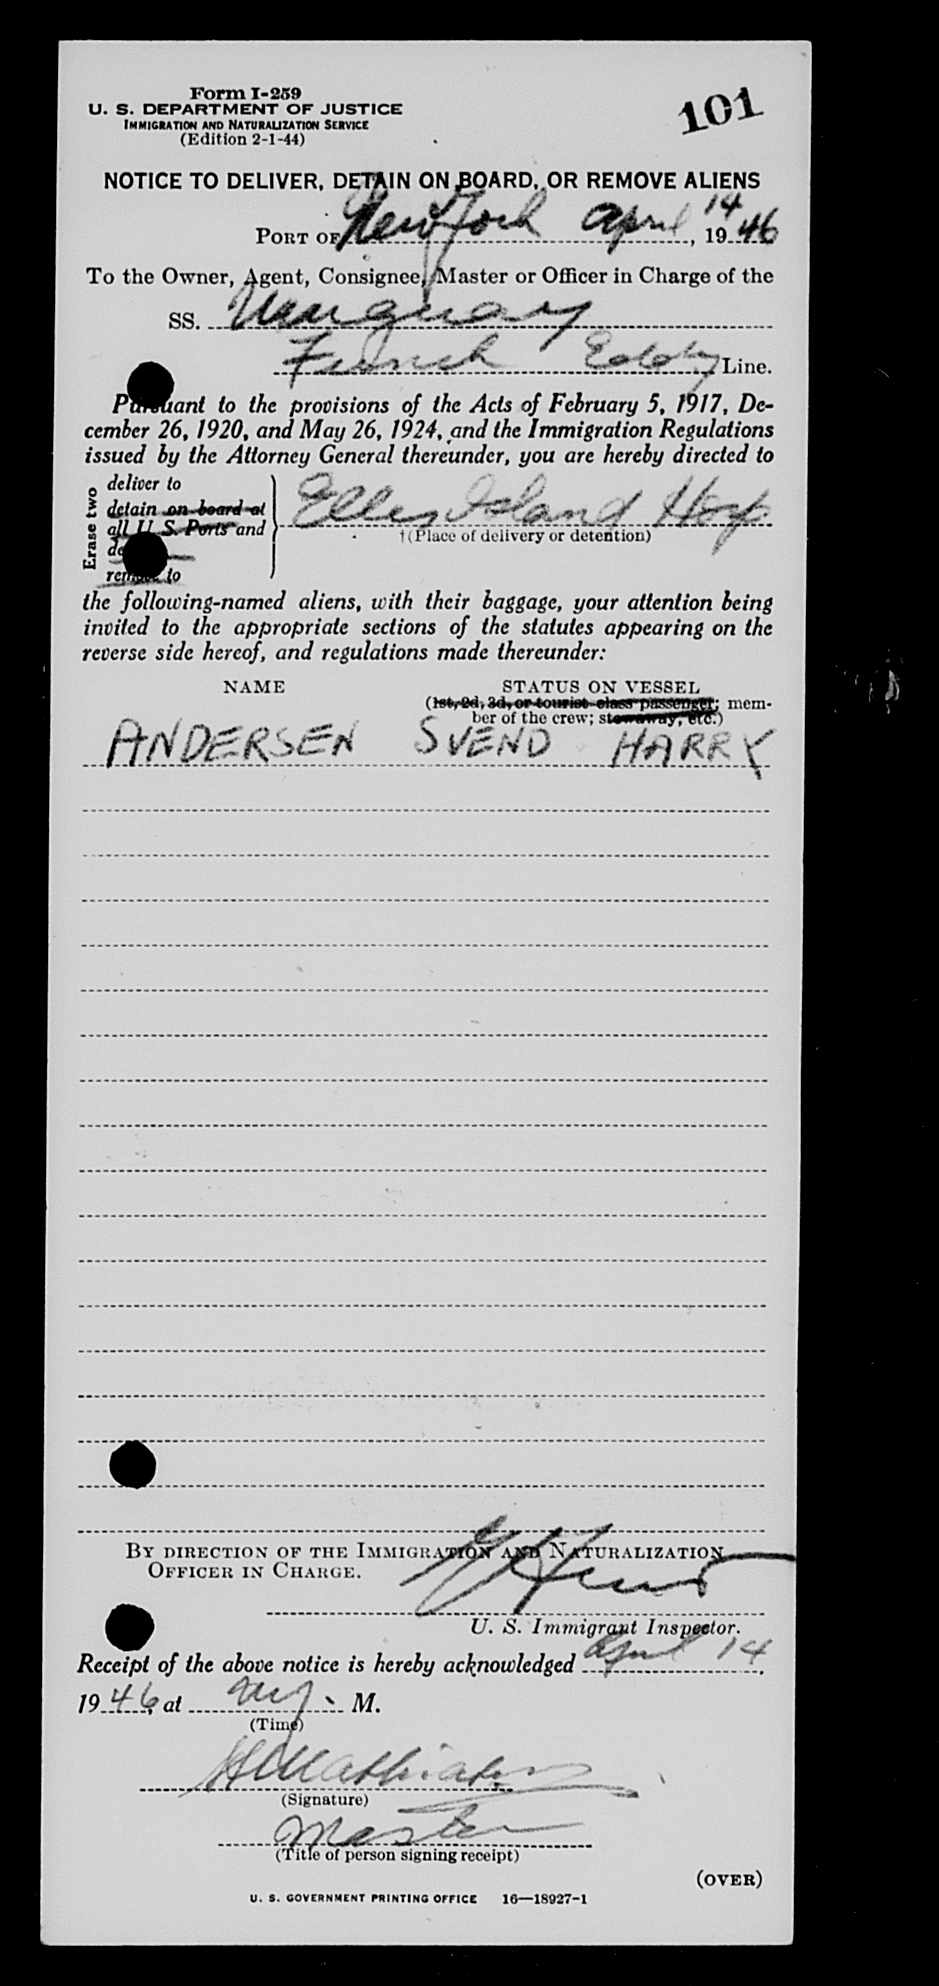 Form I-259
U. S. DEPARTMENT OF JUSTICE
IMMIGRATION AND NATURALIZATION SERVICE
(Edition 2-1-44)
101
NOTICE TO DELIVER, DETAIN ON BOARD, OR REMOVE ALIENS
PORT OF New York April 14, 1946
To the Owner, Agent, Consignee, Master or Officer in Charge of the
SS. Uruguay
French Eddy Line.
Pursuant to the provisions of the Acts of February 5, 1917, De-
cember 26, 1920, and May 26, 1924, and the Immigration Regulations
issued by the Attorney General thereunder, you are hereby directed to
Erase two
deliver to
detain on board at
all U.S. Ports and
remove to
Ellis Island Hosp
†(Place of delivery or detention)
the following-named aliens, with their baggage, your attention being
invited to the appropriate sections of the statutes appearing on the
reverse side hereof, and regulations made thereunder:
NAME STATUS ON VESSEL
(1st, 2d, 3d, or tourist class passenger; mem-
ber of the crew; stowaway, etc.)
ANDERSEN SVEND HARRY
BY DIRECTION OF THE IMMIGRATION AND NATURALIZATION
OFFICER IN CHARGE.
U. S. Immigrant Inspector.
Receipt of the above notice is hereby acknowledged April 14,
1946, at M.
(Time)
(Signature)
Master
(Title of person signing receipt)
(OVER)
U. S. GOVERNMENT PRINTING OFFICE 16—18927-1